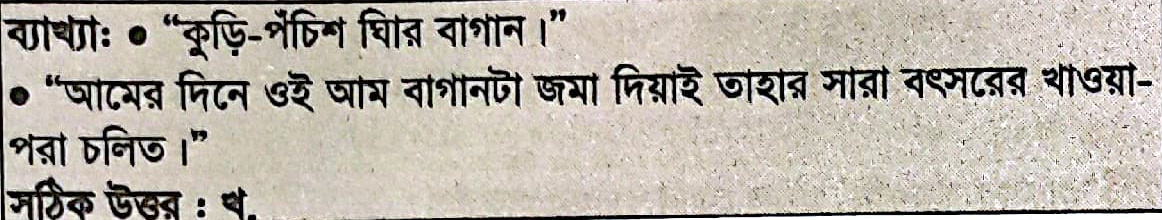 ব্যাখ্যা: ● “কুড়ি-পঁচিশ ঘির বাগান।”
● “আমের দিনে ওই আম বাগানটা জমা দিয়াই তাহার সারা বৎসরের খাওয়া-
পরা চলিত।”
সঠিক উত্তর : খ.